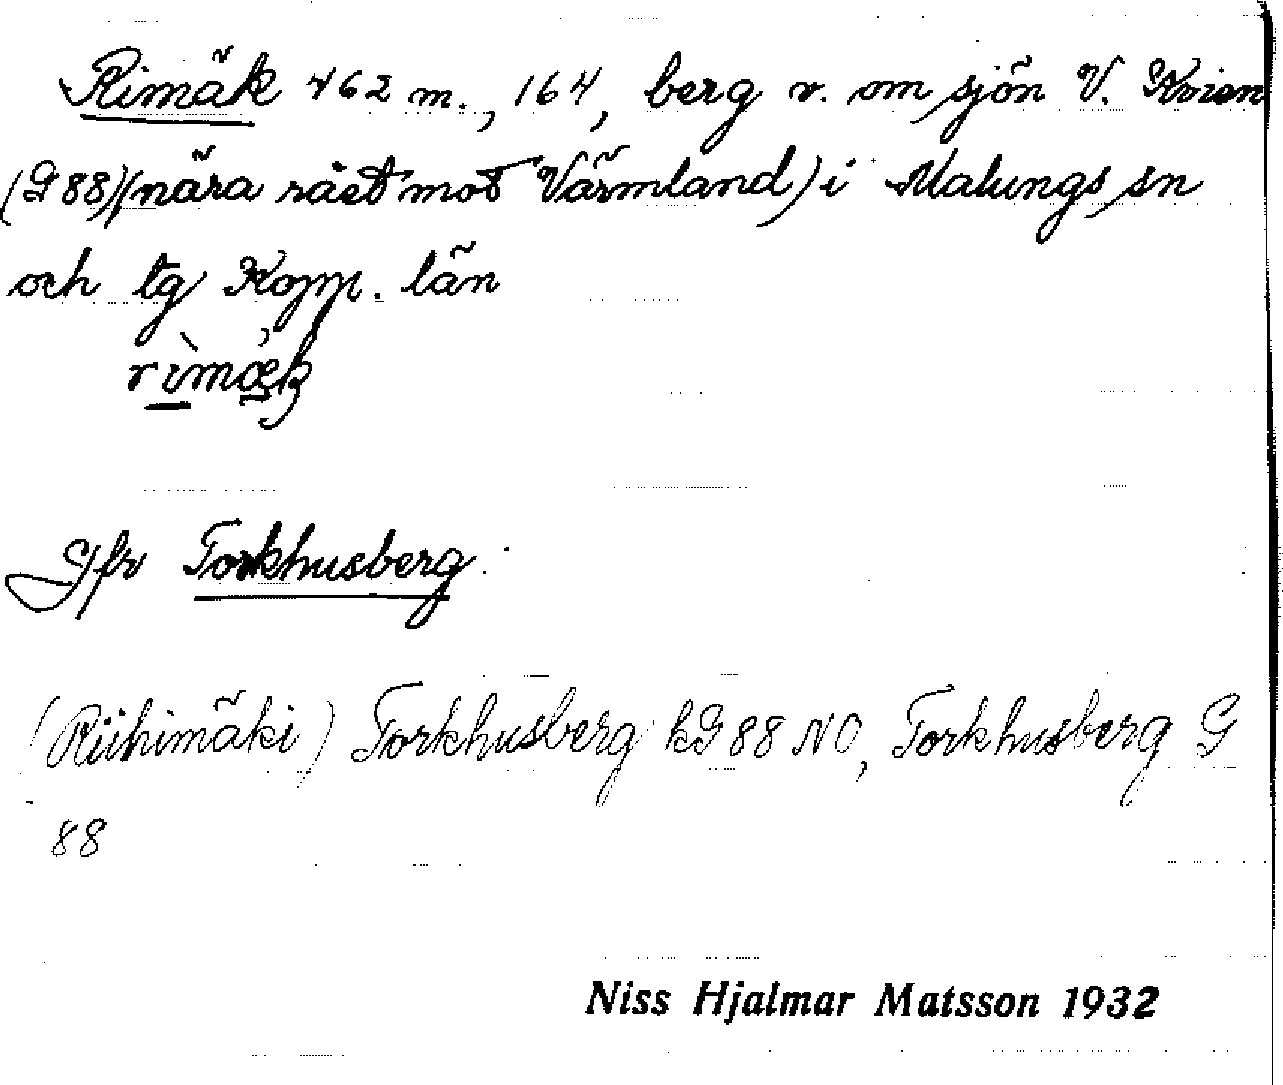 Rimäk 462 m., 164, berg v. om sjön V. Kvien
(G 88) (nära råset mot Värmland) i Malungs sn
och tg Kopp. län
rìmǽk
Jfr Torkhusberg.
(Riihimäki) Torkhusberg kG 88 NO, Torkhusberg G
88
Niss Hjalmar Matsson 1932